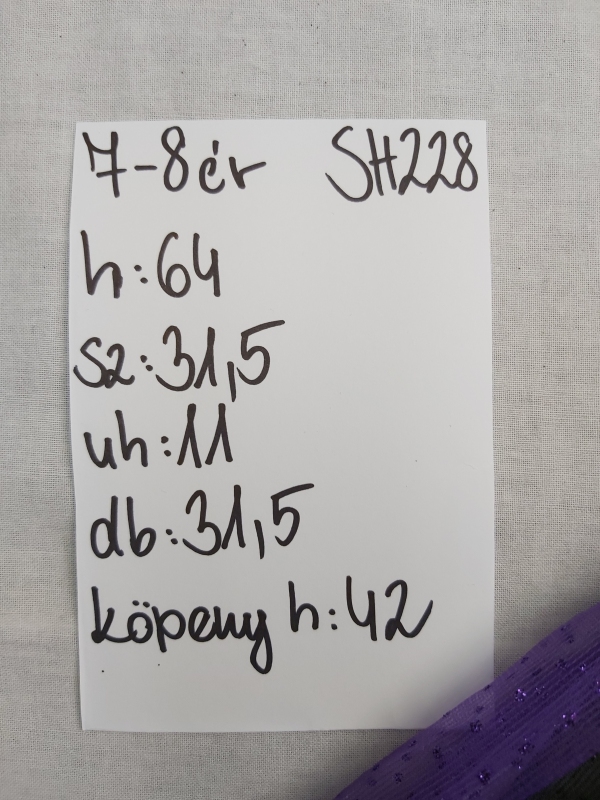 7-8 ér SH228
h: 64
sz: 31,5
uh: 11
db: 31,5
köpeny h: 42